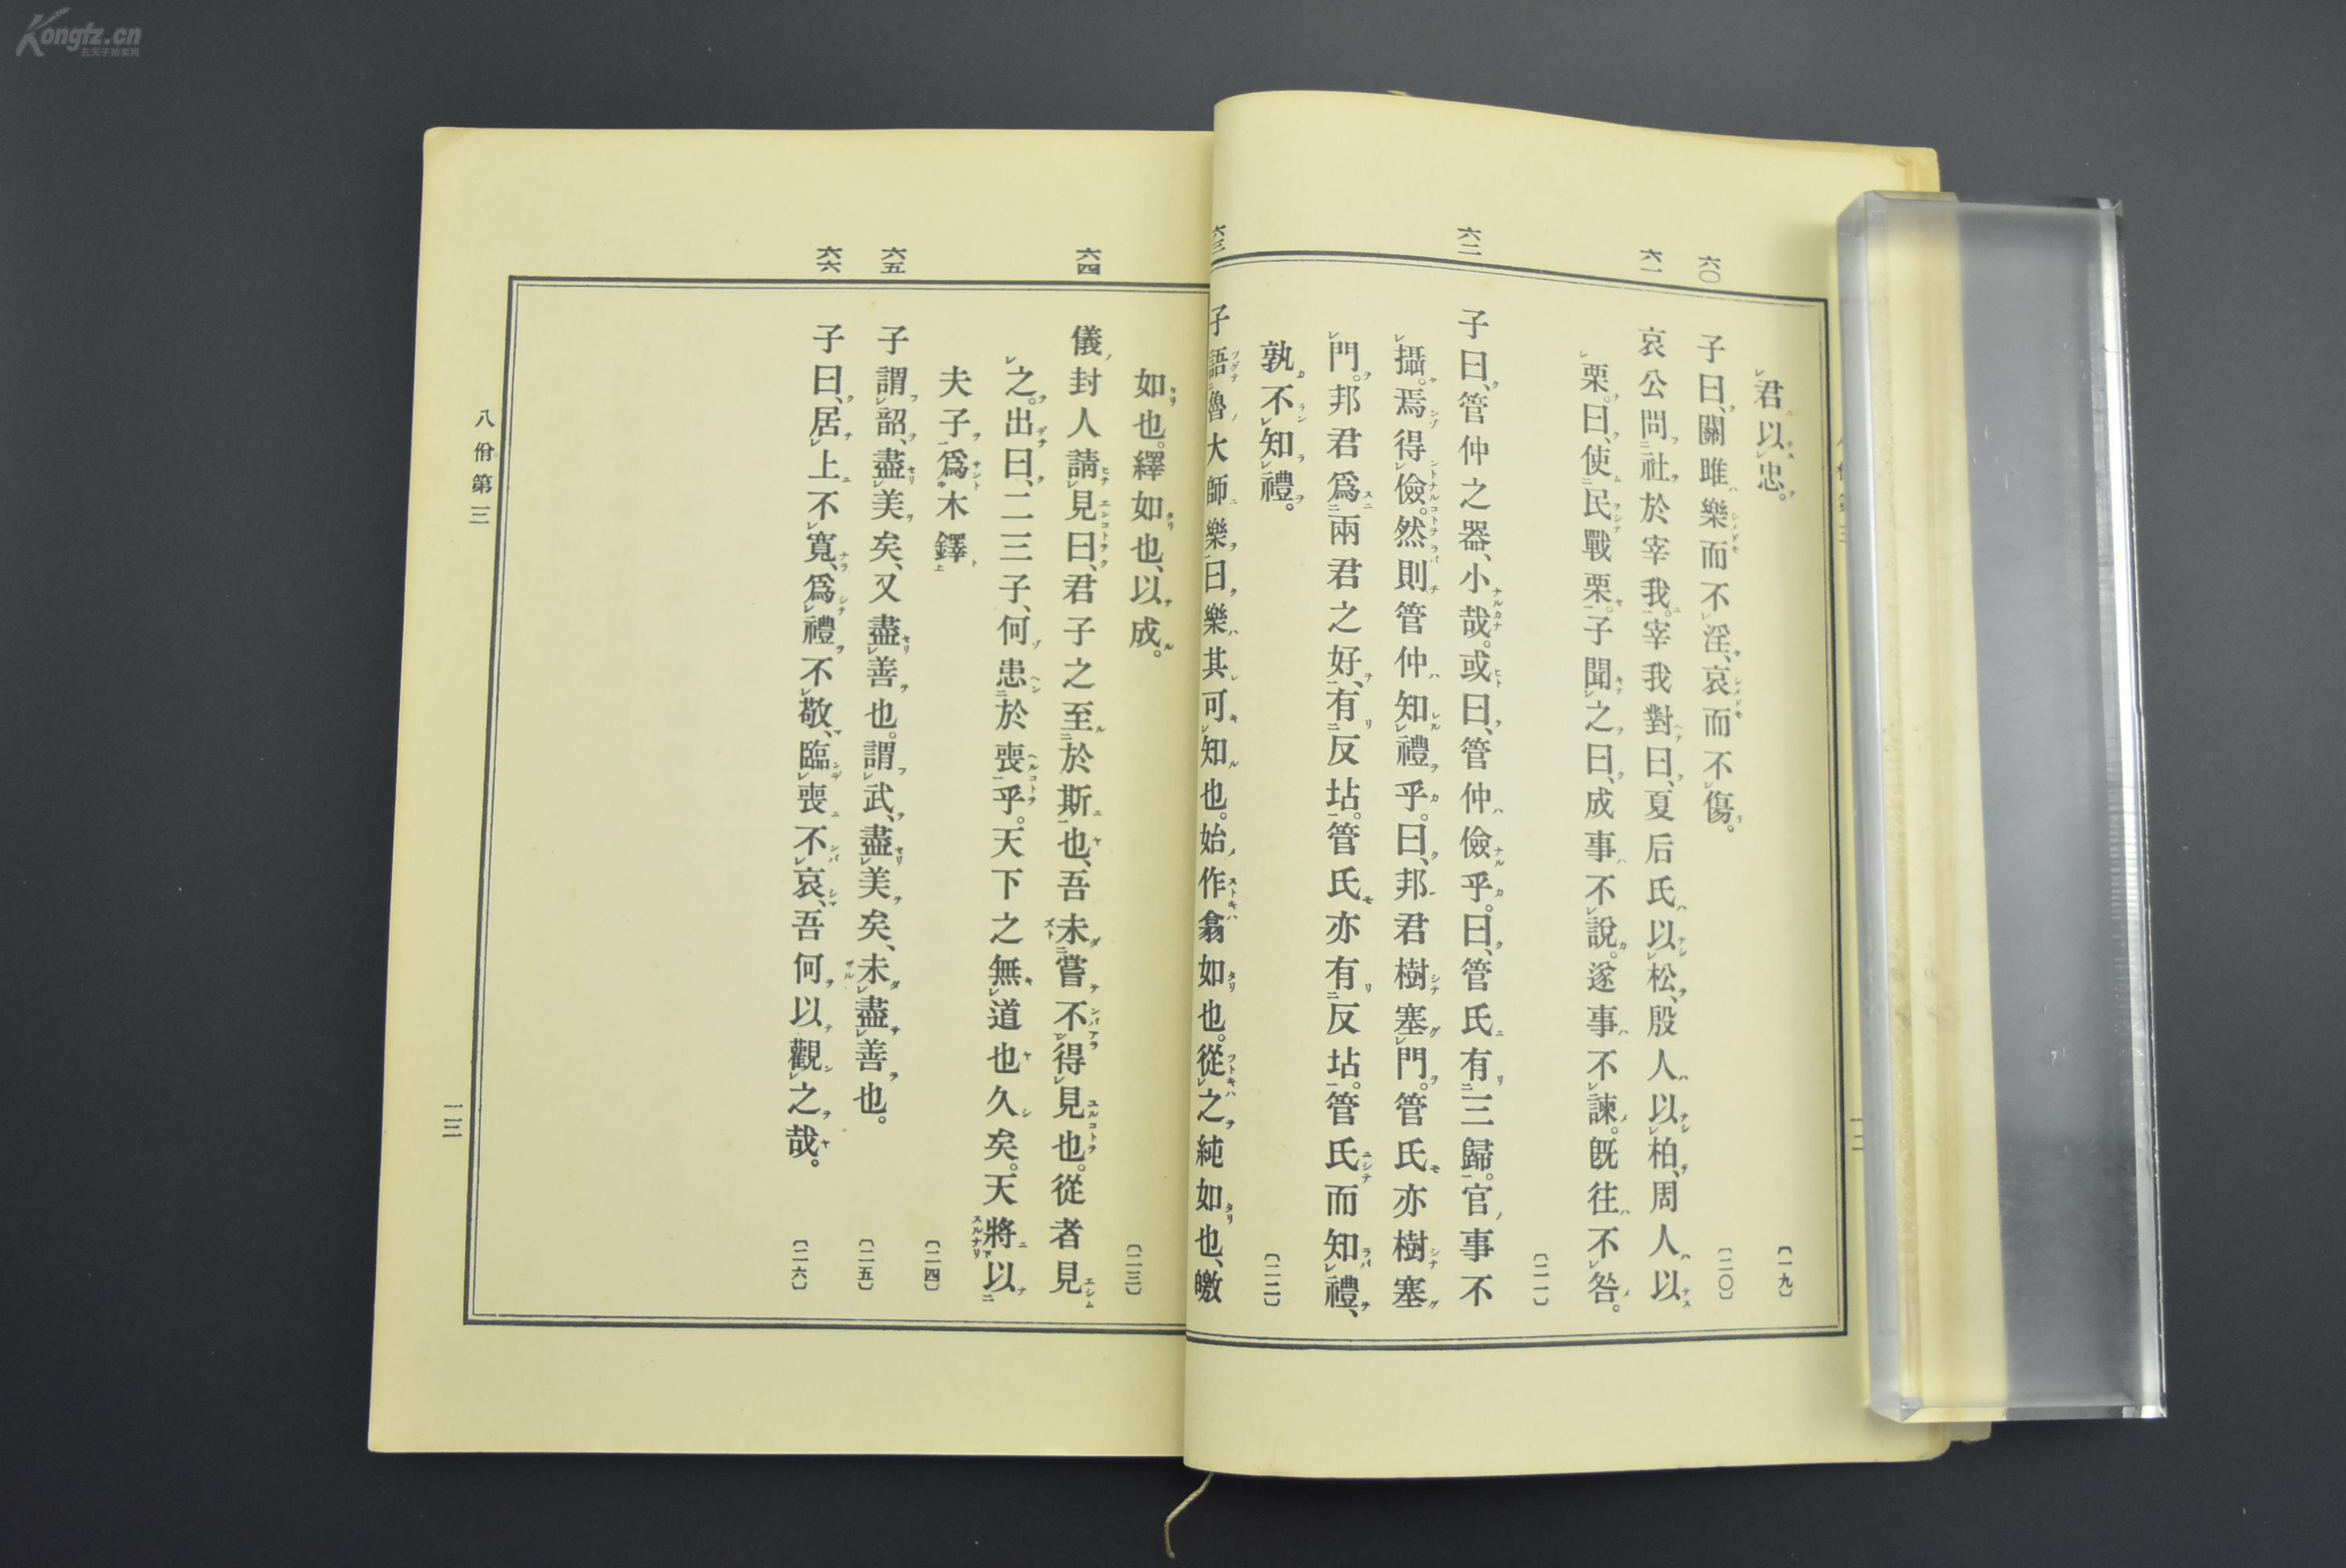 Kongfz.cn
孔夫子拍卖网
君以忠。〔一九〕
六〇
子曰、關雎樂而不淫、哀而不傷。〔二〇〕
六一
哀公問社於宰我。宰我對曰、夏后氏以松、殷人以柏、周人以
栗。曰、使民戰栗。子聞之曰、成事不說。遂事不諫。既往不咎。
〔二一〕
六二
子曰、管仲之器、小哉。或曰、管仲儉乎。曰、管氏有三歸。官事不
攝。焉得儉。然則管仲知禮乎。曰、邦君樹塞門。管氏亦樹塞
門。邦君爲兩君之好、有反坫。管氏亦有反坫。管氏而知禮、
孰不知禮。〔二二〕
六三
子語魯大師樂曰、樂其可知也。始作翕如也。從之純如也、皦
如也。繹如也、以成。〔二三〕
六四
儀封人請見曰、君子之至於斯也、吾未嘗不得見也。從者見
之。出曰、二三子、何患於喪乎。天下之無道也久矣。天將以
夫子爲木鐸〔二四〕
六五
子謂韶、盡美矣、又盡善也。謂武、盡美矣、未盡善也。〔二五〕
六六
子曰、居上不寬、爲禮不敬、臨喪不哀、吾何以觀之哉。〔二六〕
八佾第三
一三